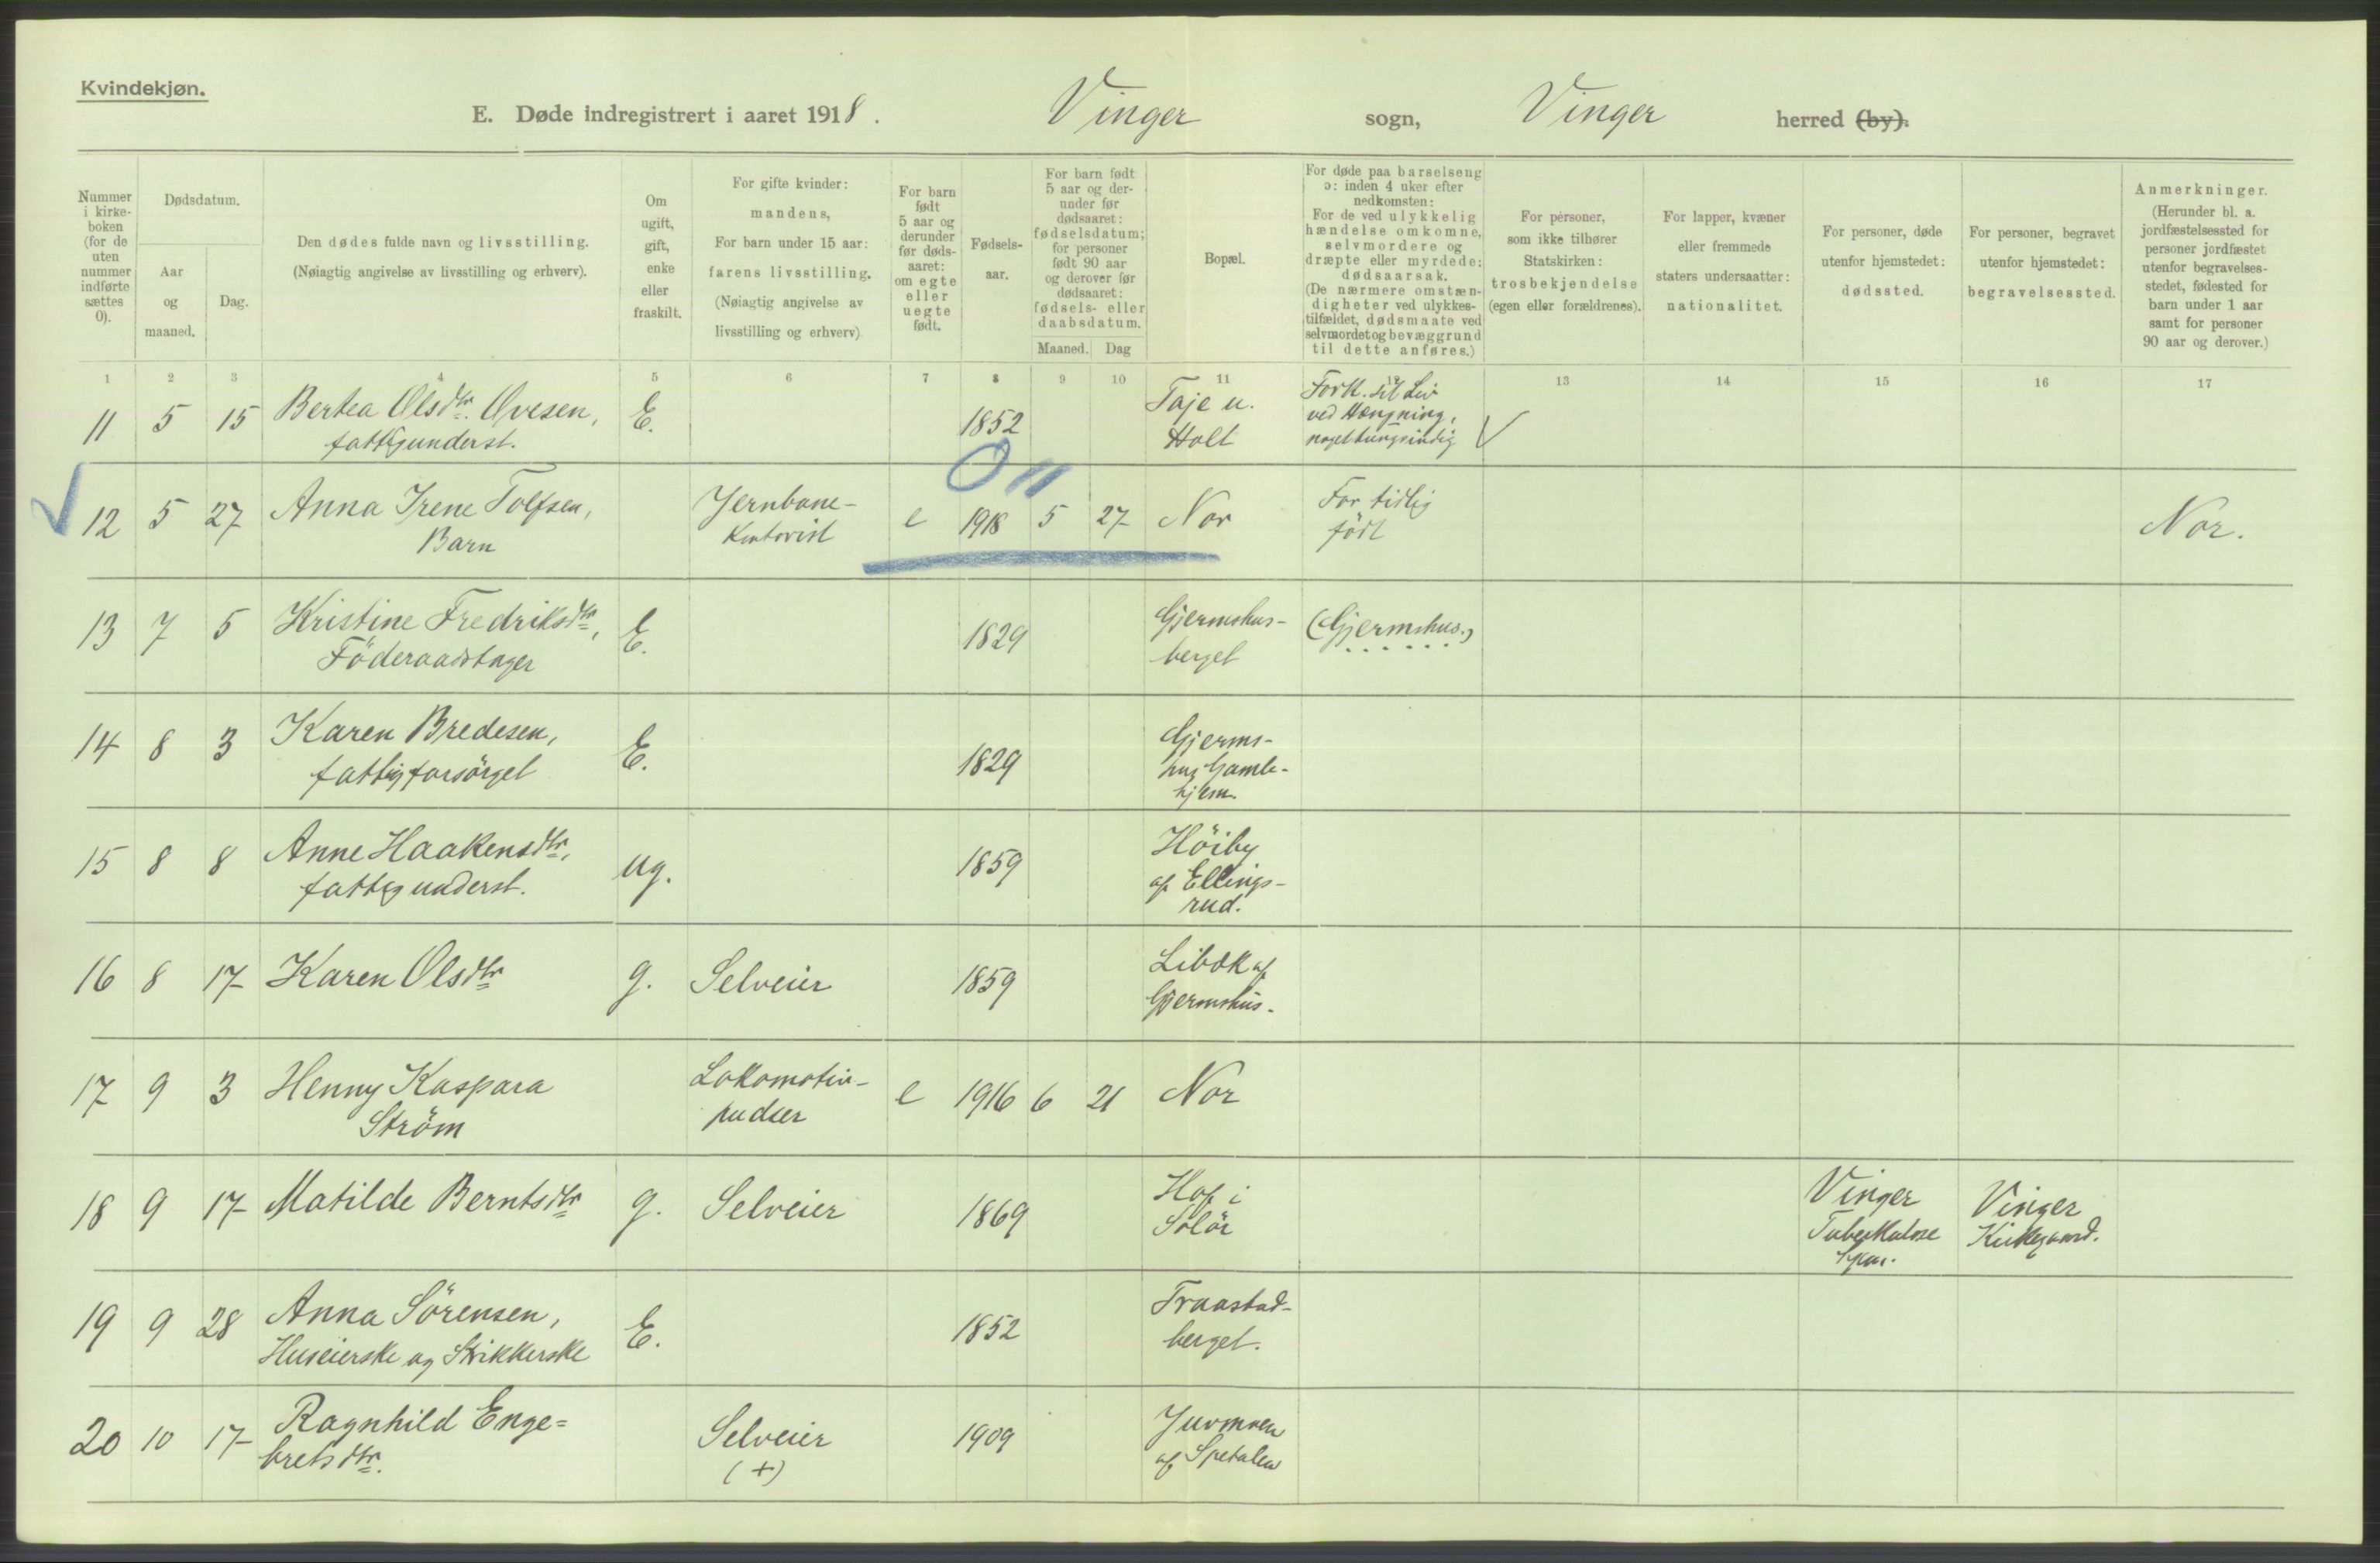 Kvindekjøn.
E. Døde indregistrert i aaret 1918. Vinger sogn, Vinger herred (by).
Nummer i kirke- boken (for de uten nummer indførte sættes 0).
Dødsdatum.
Aar og maaned.
Dag.
Den dødes fulde navn og livsstilling.
(Nøiagtig angivelse av livsstilling og erhverv).
Om ugift, gift, enke eller fraskilt.
For gifte kvinder:
mandens,
For barn under 15 aar:
farens livsstilling.
(Nøiagtig angivelse av
livsstilling og erhverv)
For barn født 5 aar og derunder før døds- aaret: om egte eller uegte født.
Fødsels- aar.
For barn født 5 aar og der- under før dødsaaret: fødselsdatum; for personer født 90 aar og derover før dødsaaret: fødsels- eller daabsdatum.
Maaned. Dag
Bopæl.
For døde paa barselseng
ɔ: inden 4 uker efter
nedkomsten:
For de ved ulykkelig
hændelse omkomne,
selvmordere og
dræpte eller myrdede:
dødsaarsak.
(De nærmere omstæn-
digheter ved ulykkes-
tilfældet, dødsmaate ved
selvmordet og bevæggrund
til dette anføres.)
For personer,
som ikke tilhører
Statskirken:
trosbekjendelse
(egen eller forældrenes).
For lapper, kvæner
eller fremmede
staters undersaatter:
nationalitet.
For personer, døde
utenfor hjemstedet:
dødssted.
For personer, begravet
utenfor hjemstedet:
begravelsessted.
Anmerkninger.
(Herunder bl. a.
jordfæstelsessted for
personer jordfæstet
utenfor begravelses-
stedet, fødested for
barn under 1 aar
samt for personer
90 aar og derover.)
1 2 3 4 5 6 7 8 9 10 11 12 13 14 15 16 17
11 5 15 Bertea Olsdtr. Ovesen, E. 1852 Taje u. Fork. sit Liv
fattigunderst. Holt ved Hængning,
noget tungsindig
O 11
12 5 27 Anna Irene Tolfsen, Jernbane- e 1918 5 27 Nor For tidlig Nor.
Barn Kontorist født
13 7 5 Kristine Fredriksdtr, E. 1829 Gjermshus- (Gjermshus.)
Föderaadstager berget
14 8 3 Karen Bredesen, E. 1829 Gjerms-
fattigforsörget hus Gamle-
hjem.
15 8 8 Anne Haakensdtr, ug. 1859 Höiby
fattigunderst. af Ellings-
rud.
16 8 17 Karen Olsdtr g. Selveier 1859 Libæk af
Gjermshus.
17 9 3 Henny Kaspara Lokomotiv- e 1916 6 21 Nor
Ström pudser
18 9 17 Matilde Berntsdtr g. Selveier 1869 Hof i Vinger Vinger
Solör Tuberkulose Kirkegaard.
19 9 28 Anna Sörensen, E. 1852 Traastad-
Huseierske og Strikkerske berget.
20 10 17 Ragnhild Enge= Selveier 1909
bretsdtr. (+) af Spetalen